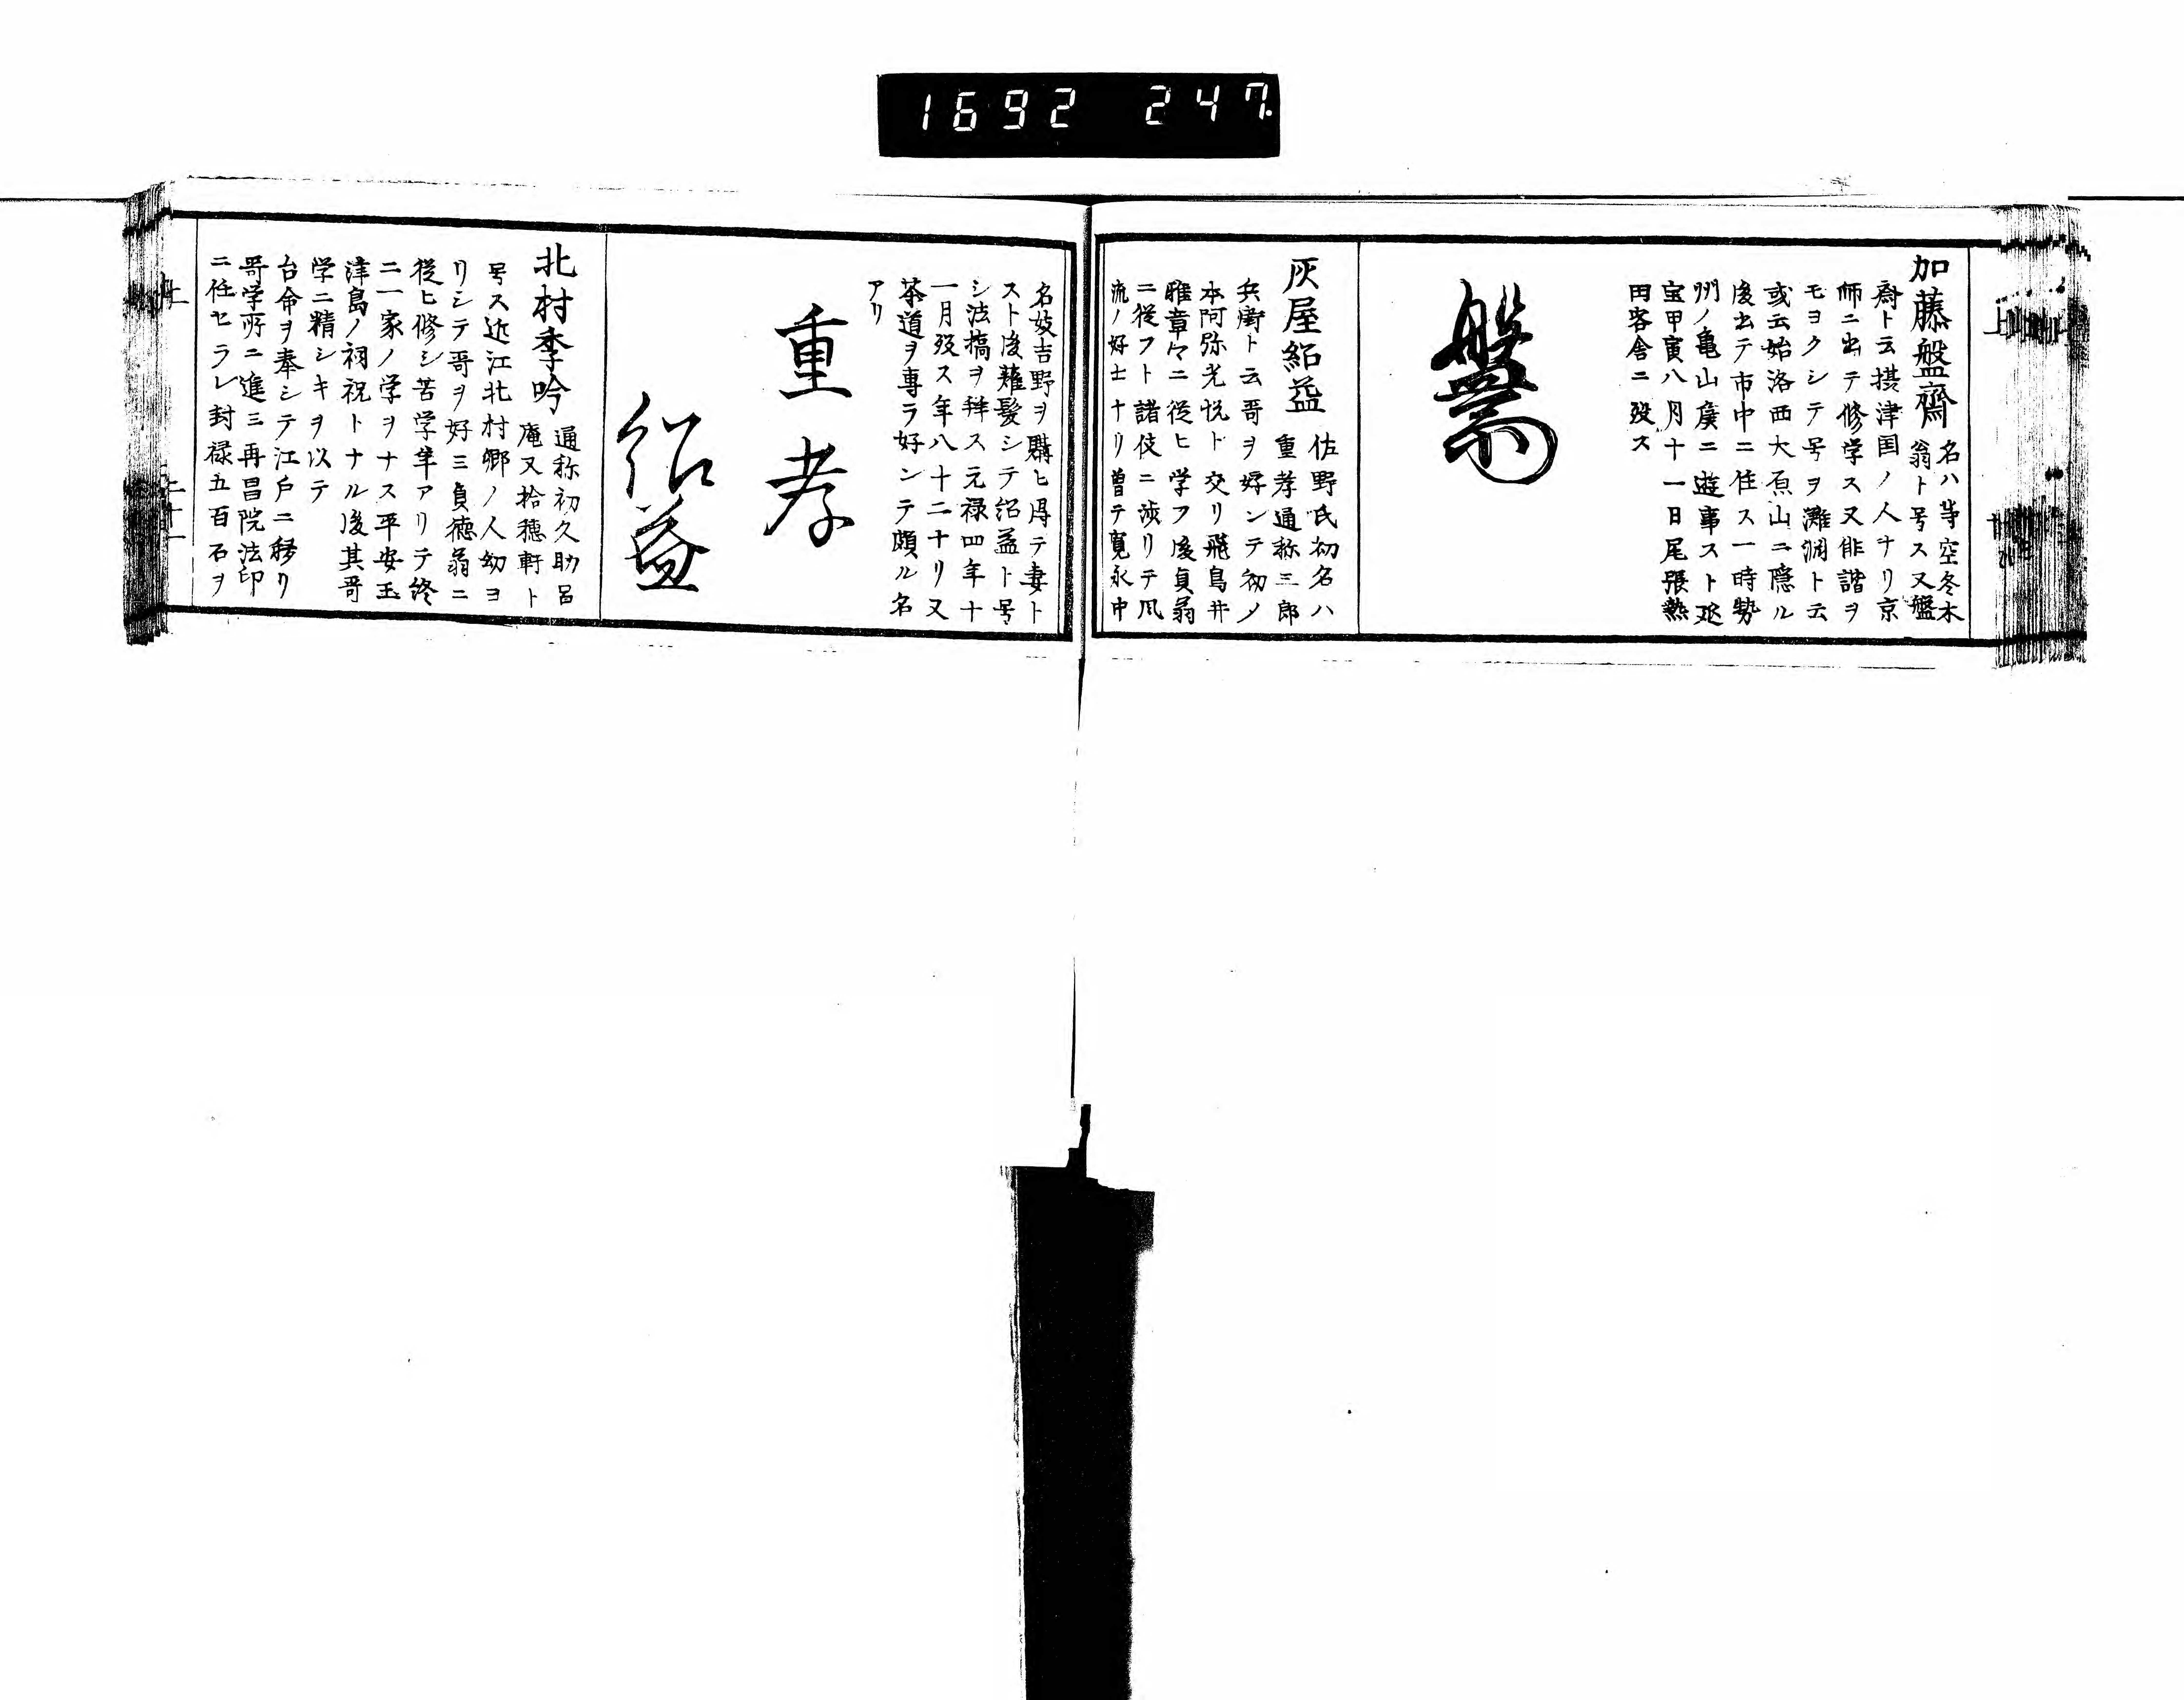 1692 247
加藤盤齋 名ハ等空冬木
翁ト号ス又盤
齋ト云摂津国ノ人ナリ京
師ニ出テ修学ス又俳諧ヲ
モヨクシテ号ヲ灘洞ト云
或云始洛西大原山ニ隠ル
後出テ市中ニ住ス一時勢
州ノ亀山侯ニ遊事スト延
宝甲寅八月十一日尾張熱
田客舎ニ歿ス
灰屋紹益 佐野氏初名ハ
重孝通称三郎
兵衛ト云哥ヲ好ンテ初ノ
本阿弥光悦ト交リ飛鳥井
雅章々ニ従ヒ学フ後貞翁
ニ従フト諸伎ニ渉リテ風
流ノ好士ナリ曽テ寛永中
名妓吉野ヲ購ヒ得テ妻ト
スト後薙髪シテ紹益ト号
シ法橋ヲ拝ス元禄四年十
一月歿ス年八十二ナリ又
茶道ヲ専ラ好ンテ頗ル名
アリ
重孝
紹益
北村季吟 通称初久助呂
庵又拾穂軒ト
号ス近江北村郷ノ人幼ヨ
リシテ哥ヲ好ミ貞徳翁ニ
従ヒ修シ苦学年アリテ終
ニ一家ノ学ヲナス平安玉
津島ノ祠祝トナル後其哥
学ニ精シキヲ以テ
台命ヲ奉シテ江戸ニ移リ
哥学所ニ進ミ再昌院法印
ニ任セラレ封禄五百石ヲ